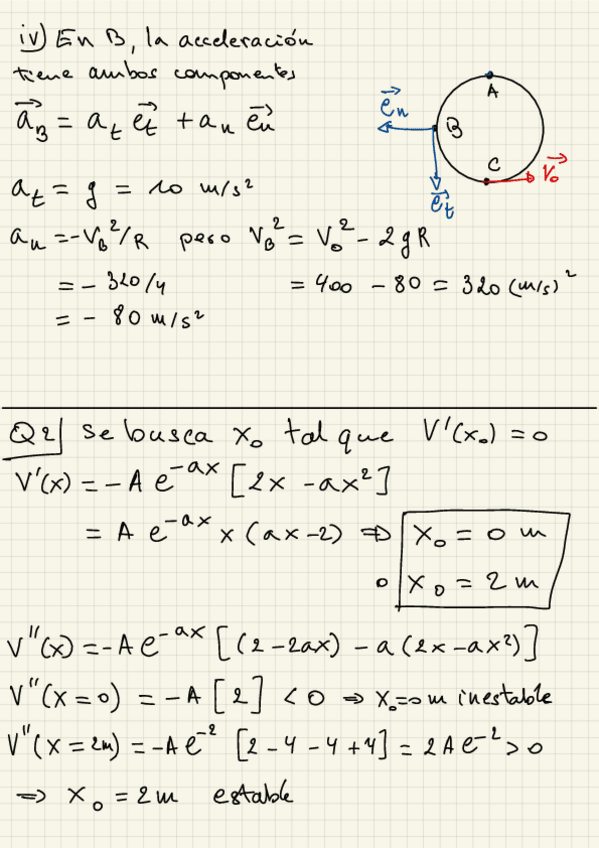 iv) En B, la acceleración
tiene ambos componentes
a⃗_B = a_t e⃗_t + a_n e⃗_n
a_t = g = 10 m/s²
a_n = -V_B²/R pero V_B² = V_0² - 2gR
= - 320/4 = 400 - 80 = 320 (m/s)²
= - 80 m/s²
A
e⃗_n
B
C
V⃗_0
e⃗_t
Q2| Se busca x_0 tal que V'(x_0) = 0
V'(x) = -A e^{-ax} [2x - ax²]
= A e^{-ax} x (ax-2) ⇒ x_0 = 0 m
o x_0 = 2 m
V''(x) = -A e^{-ax} [(2-2ax) - a(2x-ax²)]
V''(x=0) = -A [2] < 0 ⇒ x_0=0m inestable
V''(x=2m) = -A e^{-2} [2-4-4+4] = 2A e^{-2} > 0
⇒ x_0 = 2m estable